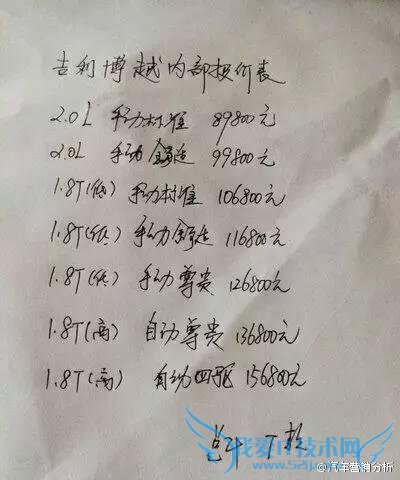 吉利博越内部报价表
2.0L 手动标准 89800元
2.0L 手动舒适 99800元
1.8T(低) 手动标准 106800元
1.8T(低) 手动舒适 116800元
1.8T(低) 手动尊贵 126800元
1.8T(高) 自动尊贵 136800元
1.8T(高) 自动四驱 156800元
我爱IT技术网
@汽车营销分析